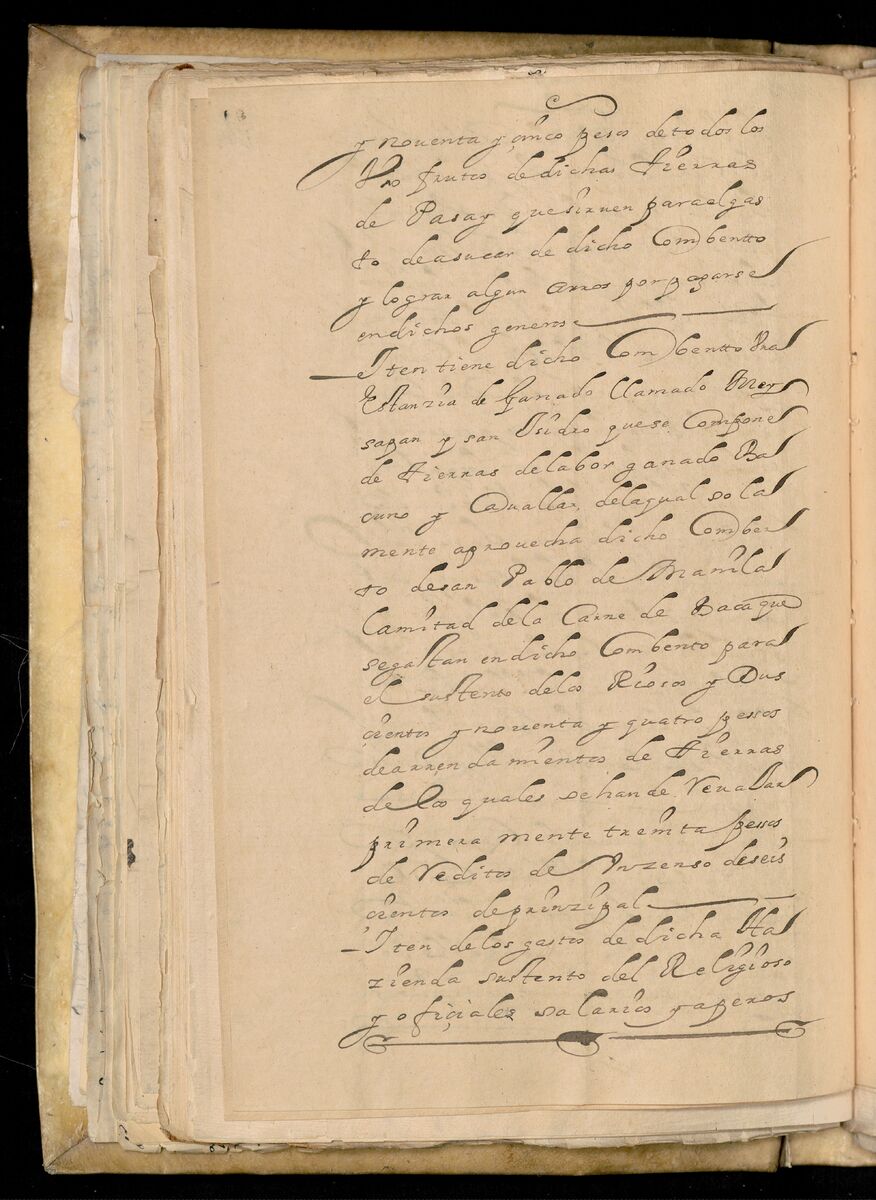 y noventa y çinco pesos de todos los
frutos de dichas tierras
de Pasay que siruen para el gas
to de asucar de dicho Combentto
y lograr algun arros por pagarse
en dichos generos
Iten tiene dicho Combentto Vna
Estanzia de ganado llamado Mey
sapan y san Isidro que se Compone
de tierras de labor ganado Ba
cuno y Cauallar, de la qual sola
mente aprouecha dicho Comben
to de san Pablo de Manila
la mitad de la Carne de Baca que
se gastan en dicho Combento para
el sustento de los Rîosos y Dus
çientos y noventa y quatro pessos
de arrendamientos de tierras
de los quales se han de Revajar
primera mente treinta pessos
de Reditos de Inzenso de seis
çientos de prinzipal
Iten de los gastos de dicha Ha
zienda sustento del Religioso
y ofiçiales salarios y aperos